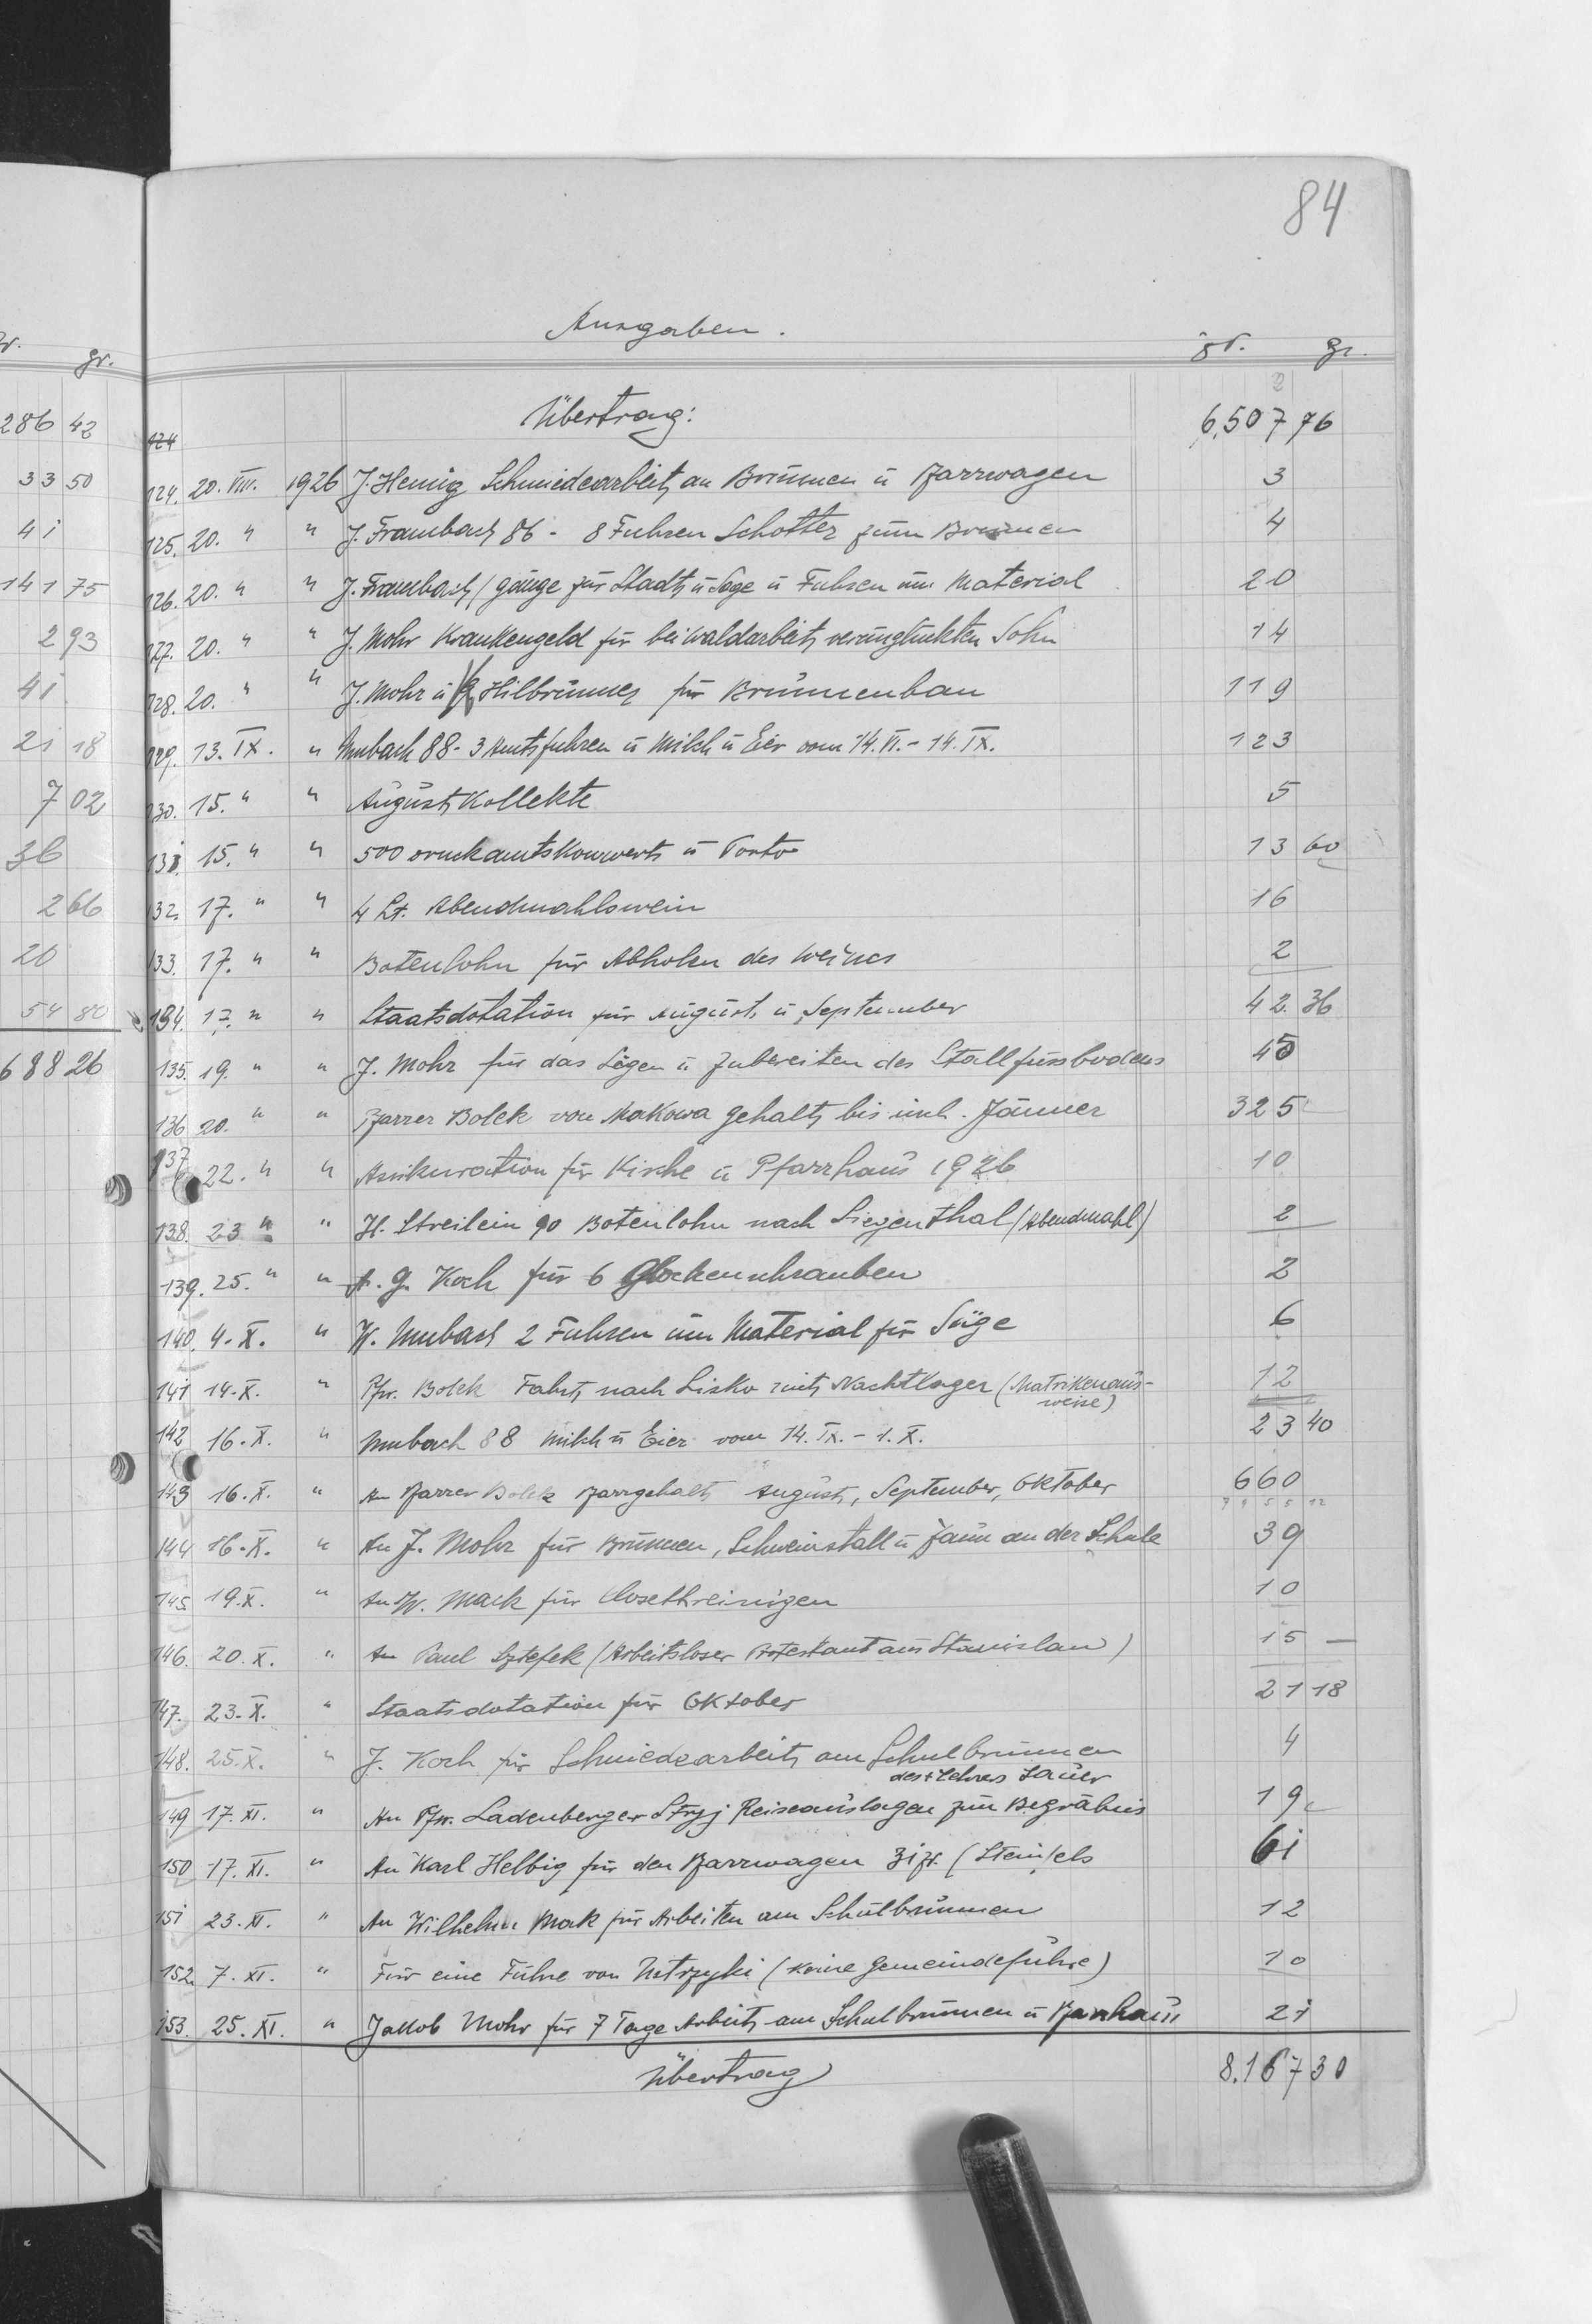 84
Ausgaben.
zł. gr.
Übertrag: 6,507 76
124. 20. VIII. 1926 J. Hennig Schmiedearbeit an Brunnen u Pfarrwagen 3
125. 20. " " J. Frambach 86 - 8 Fuhren Schotter zum Brunnen 4
126. 20. " " J. Frambach / gänge zur Stadt u Säge u Fuhren um Material 20
127. 20. " " J. Mohr Krankengeld für bei Waldarbeit verunglückten Sohn 14
128. 20. " " J. Mohr u Hilbrunner für Brunnenbau 119
129. 13. IX. " Mubach 88 - 3 Amtsfuhren u Milch u Eier vom 14. VI. - 14. IX. 123
130. 15. " " August Kollekte 5
131. 15. " " 500 Kouwerts u Porto 13 60
132. 17. " " 4 Lt. Abendmahlswein 16
133. 17. " " Botenlohn für Abholen des Weines 2
134. 17. " " Staatsdotation für August u September 42. 36
135. 19. " " J. Mohr für das Legen u Zubereiten des Stallfussbodens 45
136 20. " " Pfarrer Bolek von Makowa Gehalt bis incl. Jänner 325
137 22. " " Assikuration für Kirche u Pfarrhaus 1926 10
138. 23 " " H. Streilein 90 Botenlohn nach Siegenthal (Abendmahl) 2
139. 25. " " G. Koch für 6 Glockenschrauben 2
140. 4. X. " W. Mubach 2 Fuhren um Material für Säge 6
141 14. X. " Pfr. Bolek Fahrt nach Lisko mit Nachtlager (Matrikenaus- 12
weise)
142 16. X. " Mubach 88 Milch u Eier vom 14. IX. - 1. X. 23 40
143 16. X. " An Pfarrer Bolek Pfarrgehalt August, September, Oktober 660
144 16. X. " An J. Mohr für Brunnen, Schweinstall u Zaun an der Schule 39
145. 19. X. " An W. Mack für Closettreinigen 10
146. 20. X. " An Paul Sztefek (Arbeitsloser Protestant aus Stanislau) 15 —
147. 23. X. " Staatsdotation für Oktober 21 18
148. 25. X. " J. Koch für Schmiedearbeit am Schulbrunnen 4
des + Lehrers Lauer
149 17. XI. " An Pfr. Ladenberger Stryj Reiseauslagen zum Begräbnis 19
150 17. XI. " An Karl Helbig für den Pfarrwagen 31 zł. (Steinfels 61
151 23. XI. " An Wilhelm Mack für Arbeiten am Schulbrunnen 12
152. 7. XI. " Für eine Fuhre von Ustrzyki (keine Gemeindefuhre) 10
153. 25. XI. " Jakob Mohr für 7 Tage Arbeit am Schulbrunnen u Pfarrhaus 21
Übertrag 8.167 30
gr.
286 42
33 50
41
141 75
2 93
41
21 18
7 02
36
2 66
20
54 80
688 26